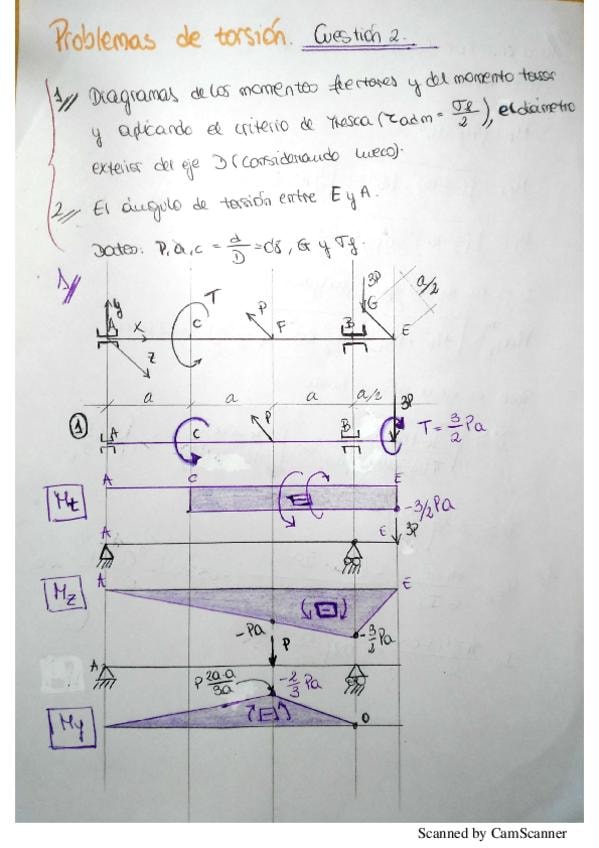 Problemas de torsión. Cuestión 2.
1// Diagramas de los momentos flectores y del momento torsor
y aplicando el criterio de Tresca (τadm = σf/2), el diámetro
exterior del eje D (considerando hueco).
2// El ángulo de torsión entre E y A.
Datos: P, a, c = d/D = 0'8, G y σf.
1//
y A x z T C P F 3P G B E a/2
a a a a/2
① A C P B 3P T = 3/2 Pa
A C E
Mt -3/2 Pa
A E 3P
Mz A E
-Pa -3/2 Pa
P
A P 2a·a/3a -2/3 Pa
My 0
Scanned by CamScanner